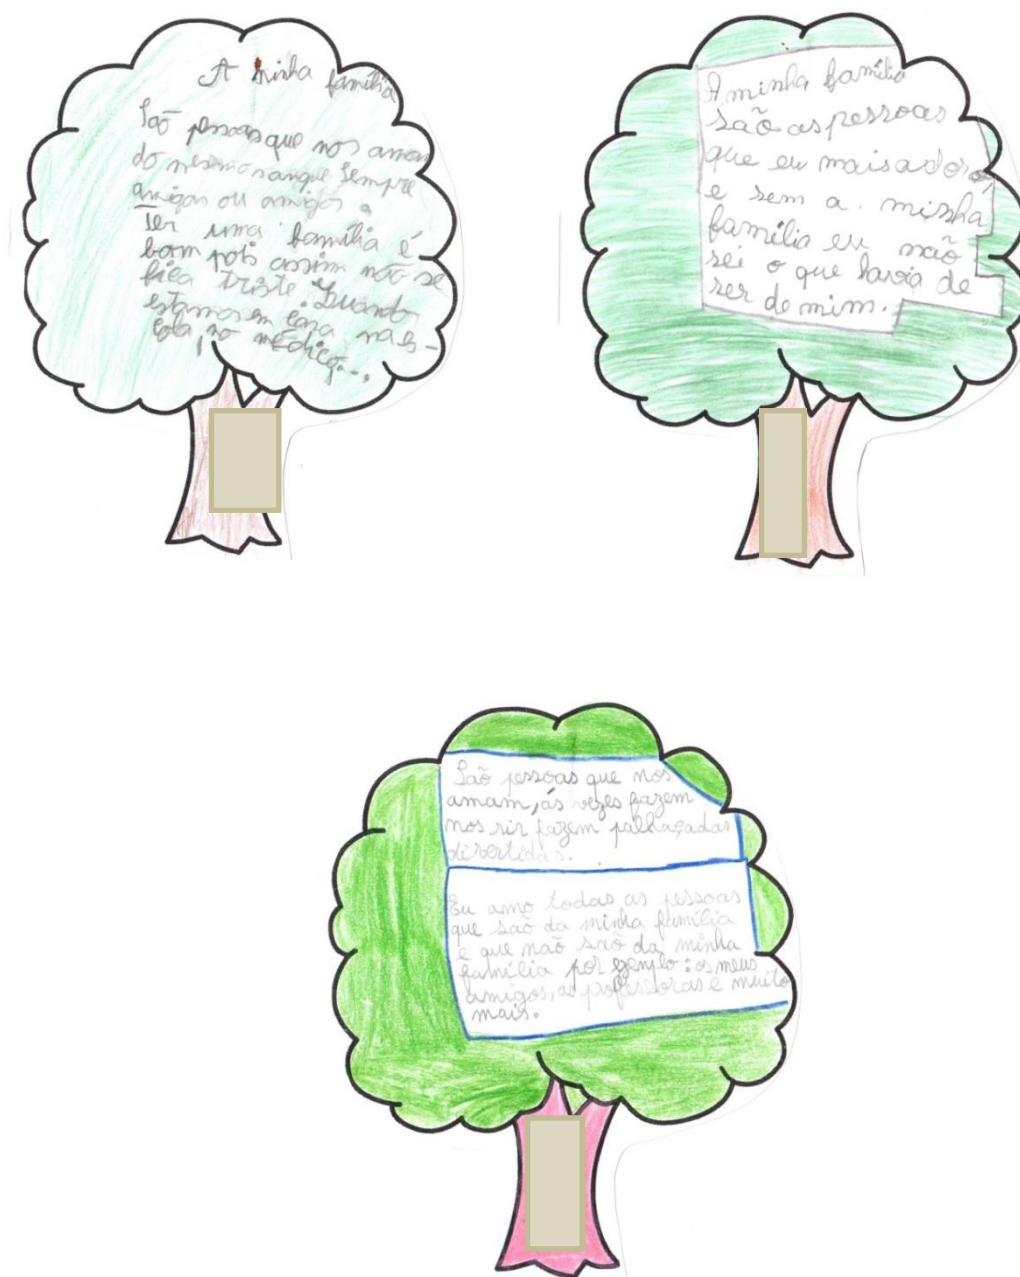 A minha família
São pessoas que nos amam
do mesmo sangue sempre
amigas ou amigos.
Ter uma família é
bom pois assim não se
fica triste. Quando
estamos em casa na es-
cola, no médico...,
A minha família
são as pessoas
que eu mais adoro
e sem a minha
família eu não
sei o que havia de
ser de mim.
São pessoas que nos
amam, ás vezes fazem
nos rir fazem palhaçadas
divertidas.
Eu amo todas as pessoas
que são da minha família
e que não são da minha
família por exemplo: os meus
amigos, as professoras e muito
mais.